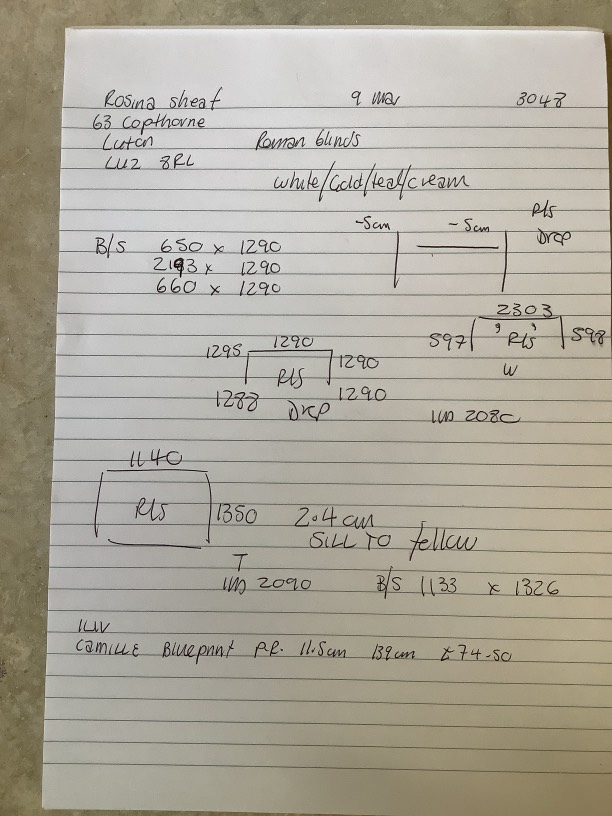 Rosina sheaf 9 Mar 3048
63 Copthorne
Luton Roman blinds
LU2 8RL
white/Gold/teal/cream
-5cm -5cm R/s
Drop
B/S 650 x 1290
2193 x 1290
660 x 1290
2303
597 'R/s' 598
W
1290
1295 1290
R/s
1288 Drop 1290
2080
1140
R/s 1350 2.4cm
SILL TO fellow
T
2090 B/S 1133 x 1326
LUV
CAMILLE Blueprint P.R. 11.5cm 139cm £74-50